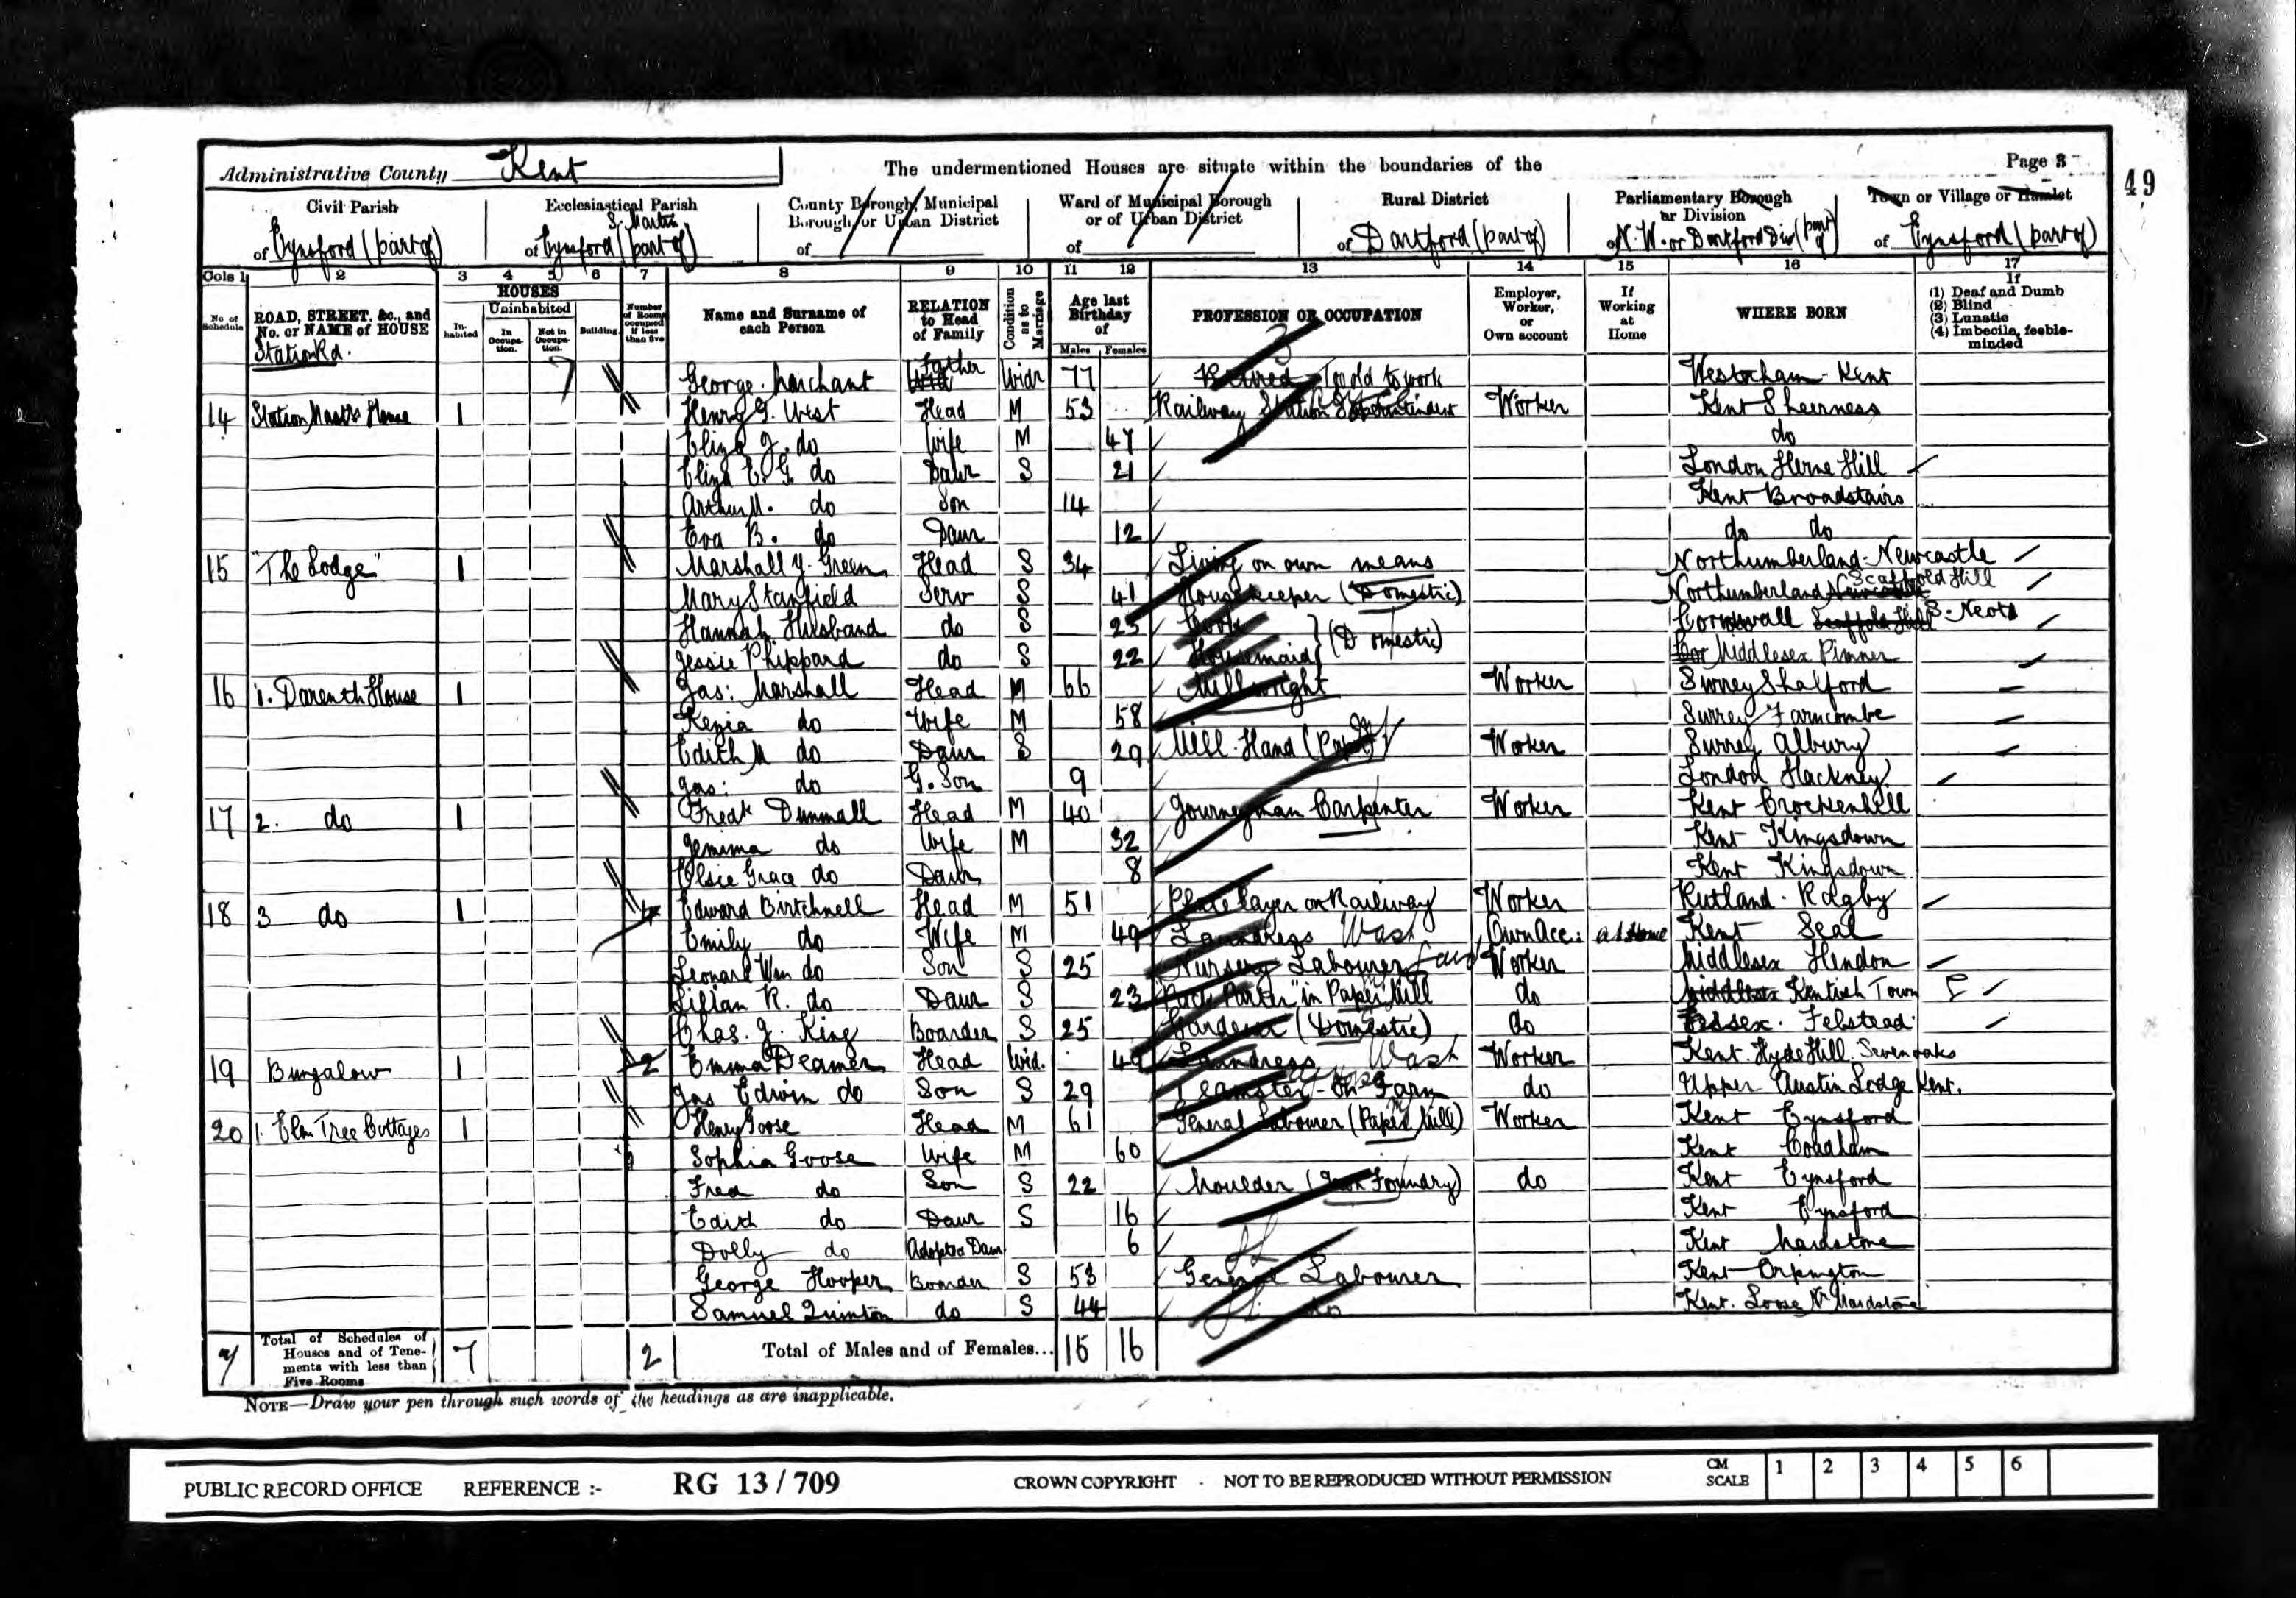 Administrative County Kent
The undermentioned Houses are situate within the boundaries of the
Page 3
49
Civil Parish
of Eynsford (part of)
Ecclesiastical Parish
of Eynsford S. Martin (part of)
County Borough, Municipal Borough, or Urban District
of
Ward of Municipal Borough or of Urban District
of
Rural District
of Dartford (part of)
Parliamentary Borough or Division
of N.W. or Dartford Div (part of)
Town or Village or Hamlet
of Eynsford (part of)
Cols 1 2 3 4 5 6 7 8 9 10 11 12 13 14 15 16 17
No. of Schedule
ROAD, STREET, &c., and No. or NAME of HOUSE
HOUSES
Inhabited
Uninhabited
In Occupation.
Not in Occupation.
Building
Number of Rooms occupied if less than five
Name and Surname of each Person
RELATION to Head of Family
Condition as to Marriage
Age last Birthday of
Males Females
PROFESSION OR OCCUPATION
Employer, Worker, or Own account
If Working at Home
WHERE BORN
If (1) Deaf and Dumb (2) Blind (3) Lunatic (4) Imbecile, feeble-minded
Station Rd.
George Marchant Father Widr 77 Retired Too old to work Westerham Kent
14 Station Mast's House 1 Henry G. West Head M 53 Railway Station Worker Kent Sheerness
Eliza J. do Wife M 47 do
Eliza E. G. do Daur S 21 London Herne Hill
Arthur do Son 14 Kent Broadstairs
Eva B. do Daur 12 do do
15 "The Lodge" 1 Marshall Y. Green Head S 34 Living on own means Northumberland-Newcastle
Mary Stanfield Serv S 41 Housekeeper (Domestic) Northumberland Newcastle Scaffold Hill
Hannah Husband do S 25 Cook } (Domestic) Cornwall Scaffold Hill S. Neots
Jessie Phippard do S 22 Housemaid } Cor Middlesex Pinner
16 1. Darenth House 1 Jas: Marshall Head M 66 Millwright Worker Surrey Shalford
Kezia do Wife M 58 Surrey Farncombe
Edith M do Daur S 29 Mill Hand (Paper) Worker Surrey Albury
Jas: do G. Son 9 London Hackney
17 2. do 1 Fredk Dunmall Head M 40 Journeyman Carpenter Worker Kent Crockenhill
Jemima do Wife M 32 Kent Kingsdown
Elsie Grace do Daur 8 Kent Kingsdown
18 3 do 1 4 Edward Birtchnell Head M 51 Plate layer on Railway Worker Rutland
Emily do Wife M 49 Laundress Wash Own Acc: at Home Kent Seal
Leonard Wm do Son S 25 Nursery Labourer Worker Middlesex Hendon
Lilian R. do Daur S 23 in Paper Mill do Middlesex Kentish Town
Chas. J. King Boarder S 25 Gardener (Domestic) do Essex. Felstead
19 Bungalow 1 2 Emma Deamer Head Wid. 49 Laundress Wash Worker Kent. Hyde Hill. Sevenoaks
Jas Edwin do Son S 29 Teamster - on Farm do Upper Austin Lodge Kent.
20 1. Elm Tree Cottages 1 Henry Goose Head M 61 General Labourer (Paper Mill) Worker Kent Eynsford
Sophia Goose Wife M 60 Kent Cudham
Fred do Son S 22 Moulder (Iron Foundry) do Kent Eynsford
Edith do Daur S 16 Kent Eynsford
Dolly do Adopted Daur 6 Kent Maidstone
George Hooper Boarder S 53 General Labourer Kent Orpington
Samuel Quinton do S 44 do Kent. Loose Nr Maidstone
7 Total of Schedules of Houses and of Tenements with less than Five Rooms 7 2 Total of Males and of Females... 15 16
NOTE—Draw your pen through such words of the headings as are inapplicable.
PUBLIC RECORD OFFICE REFERENCE :- RG 13/709 CROWN COPYRIGHT - NOT TO BE REPRODUCED WITHOUT PERMISSION CM SCALE 1 2 3 4 5 6